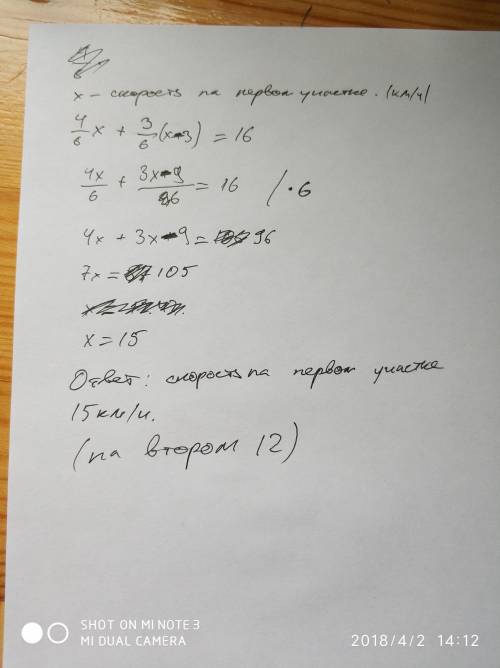 x – скорость на первом участке. (км/ч)
4/6 x + 3/6 (x-3) = 16
4x/6 + 3x-9/6 = 16 / · 6
4x + 3x - 9 = 96
7x = 105
x = 15
Ответ: скорость на первом участке
15 км/ч.
(на втором 12)
SHOT ON MI NOTE 3
MI DUAL CAMERA
2018/4/2 14:12